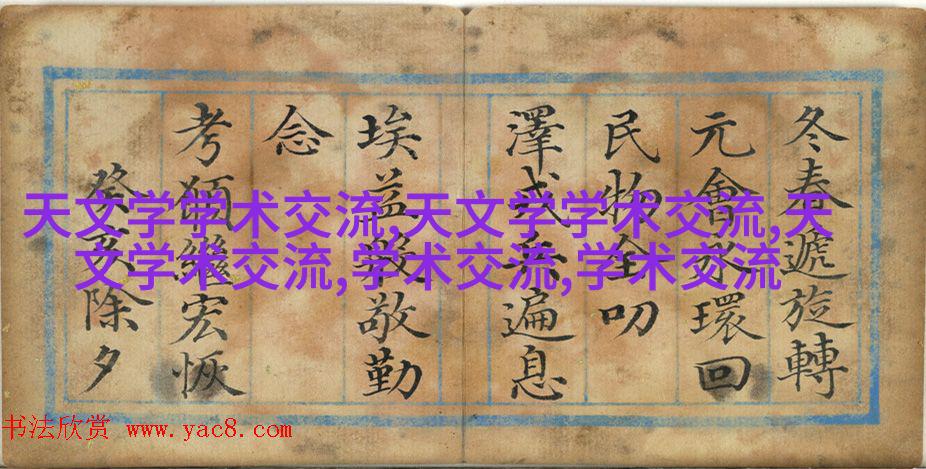 冬春遞旋轉
元會永環回
民物全叨
澤戎兵遍息
埃益敬勤
念
考願繼宏恢
癸亥除夕
天文学学术交流,天文学学术交流,天
文学术交流,学术交流,学术交流
书法欣赏 www.yac8.com